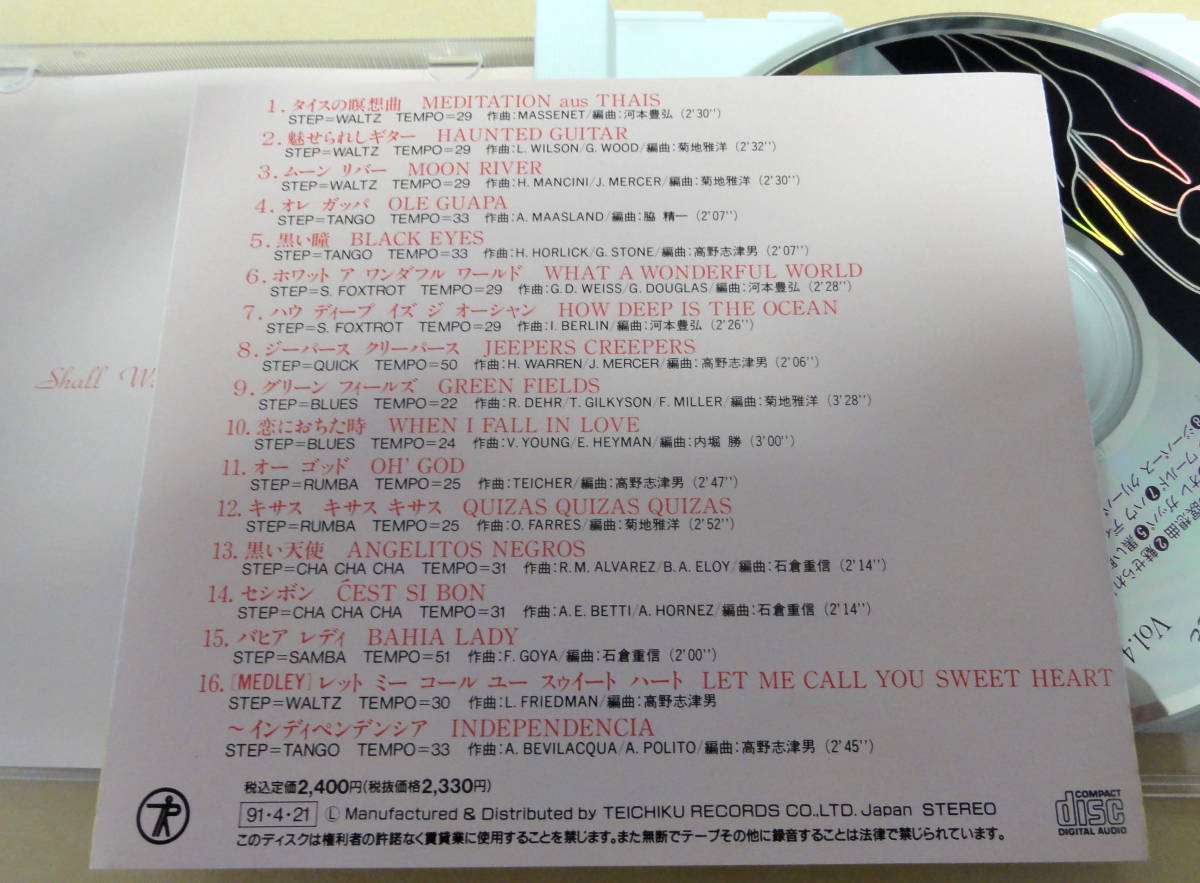 1. タイスの瞑想曲 MEDITATION aus THAIS
STEP=WALTZ TEMPO=29 作曲:MASSENET/編曲:河本豊弘(2'30'')
2. 魅せられしギター HAUNTED GUITAR
STEP=WALTZ TEMPO=29 作曲:L. WILSON/G. WOOD/編曲:菊地雅洋(2'32'')
3. ムーン リバー MOON RIVER
STEP=WALTZ TEMPO=29 作曲:H. MANCINI/J. MERCER/編曲:菊地雅洋(2'30'')
4. オレ ガッパ OLE GUAPA
STEP=TANGO TEMPO=33 作曲:A. MAASLAND/編曲:脇 精一(2'07'')
5. 黒い瞳 BLACK EYES
STEP=TANGO TEMPO=33 作曲:H. HORLICK/G. STONE/編曲:高野志津男(2'07'')
6. ホワット ア ワンダフル ワールド WHAT A WONDERFUL WORLD
STEP=S. FOXTROT TEMPO=29 作曲:G.D. WEISS/G. DOUGLAS/編曲:河本豊弘(2'28'')
7. ハウ ディープ イズ ジ オーシャン HOW DEEP IS THE OCEAN
STEP=S. FOXTROT TEMPO=29 作曲:I. BERLIN/編曲:河本豊弘(2'26'')
8. ジーパース クリーパース JEEPERS CREEPERS
STEP=QUICK TEMPO=50 作曲:H. WARREN/J. MERCER/編曲:高野志津男(2'06'')
9. グリーン フィールズ GREEN FIELDS
STEP=BLUES TEMPO=22 作曲:R. DEHR/T. GILKYSON/F. MILLER/編曲:菊地雅洋(3'28'')
10. 恋におちた時 WHEN I FALL IN LOVE
STEP=BLUES TEMPO=24 作曲:V. YOUNG/E. HEYMAN/編曲:内堀 勝(3'00'')
11. オー ゴッド OH' GOD
STEP=RUMBA TEMPO=25 作曲:TEICHER/編曲:高野志津男(2'47'')
12. キサス キサス キサス QUIZAS QUIZAS QUIZAS
STEP=RUMBA TEMPO=25 作曲:O. FARRES/編曲:菊地雅洋(2'52'')
13. 黒い天使 ANGELITOS NEGROS
STEP=CHA CHA CHA TEMPO=31 作曲:R.M. ALVAREZ/B.A. ELOY/編曲:石倉重信(2'14'')
14. セシボン C'EST SI BON
STEP=CHA CHA CHA TEMPO=31 作曲:A.E. BETTI/A. HORNEZ/編曲:石倉重信(2'14'')
15. バヒア レディ BAHIA LADY
STEP=SAMBA TEMPO=51 作曲:F. GOYA/編曲:石倉重信(2'00'')
16. [MEDLEY] レット ミー コール ユー スゥイート ハート LET ME CALL YOU SWEET HEART
STEP=WALTZ TEMPO=30 作曲:L. FRIEDMAN/編曲:高野志津男
～インディペンデンシア INDEPENDENCIA
STEP=TANGO TEMPO=33 作曲:A. BEVILACQUA/A. POLITO/編曲:高野志津男(2'45'')
税込定価2,400円(税抜価格2,330円)
91・4・21 Ⓛ Manufactured & Distributed by TEICHIKU RECORDS CO.,LTD. Japan STEREO
このディスクは権利者の許諾なく賃貸業に使用することを禁じます。また無断でテープその他に録音することは法律で禁じられています。
COMPACT
disc
DIGITAL AUDIO
Shall W
Vol.4